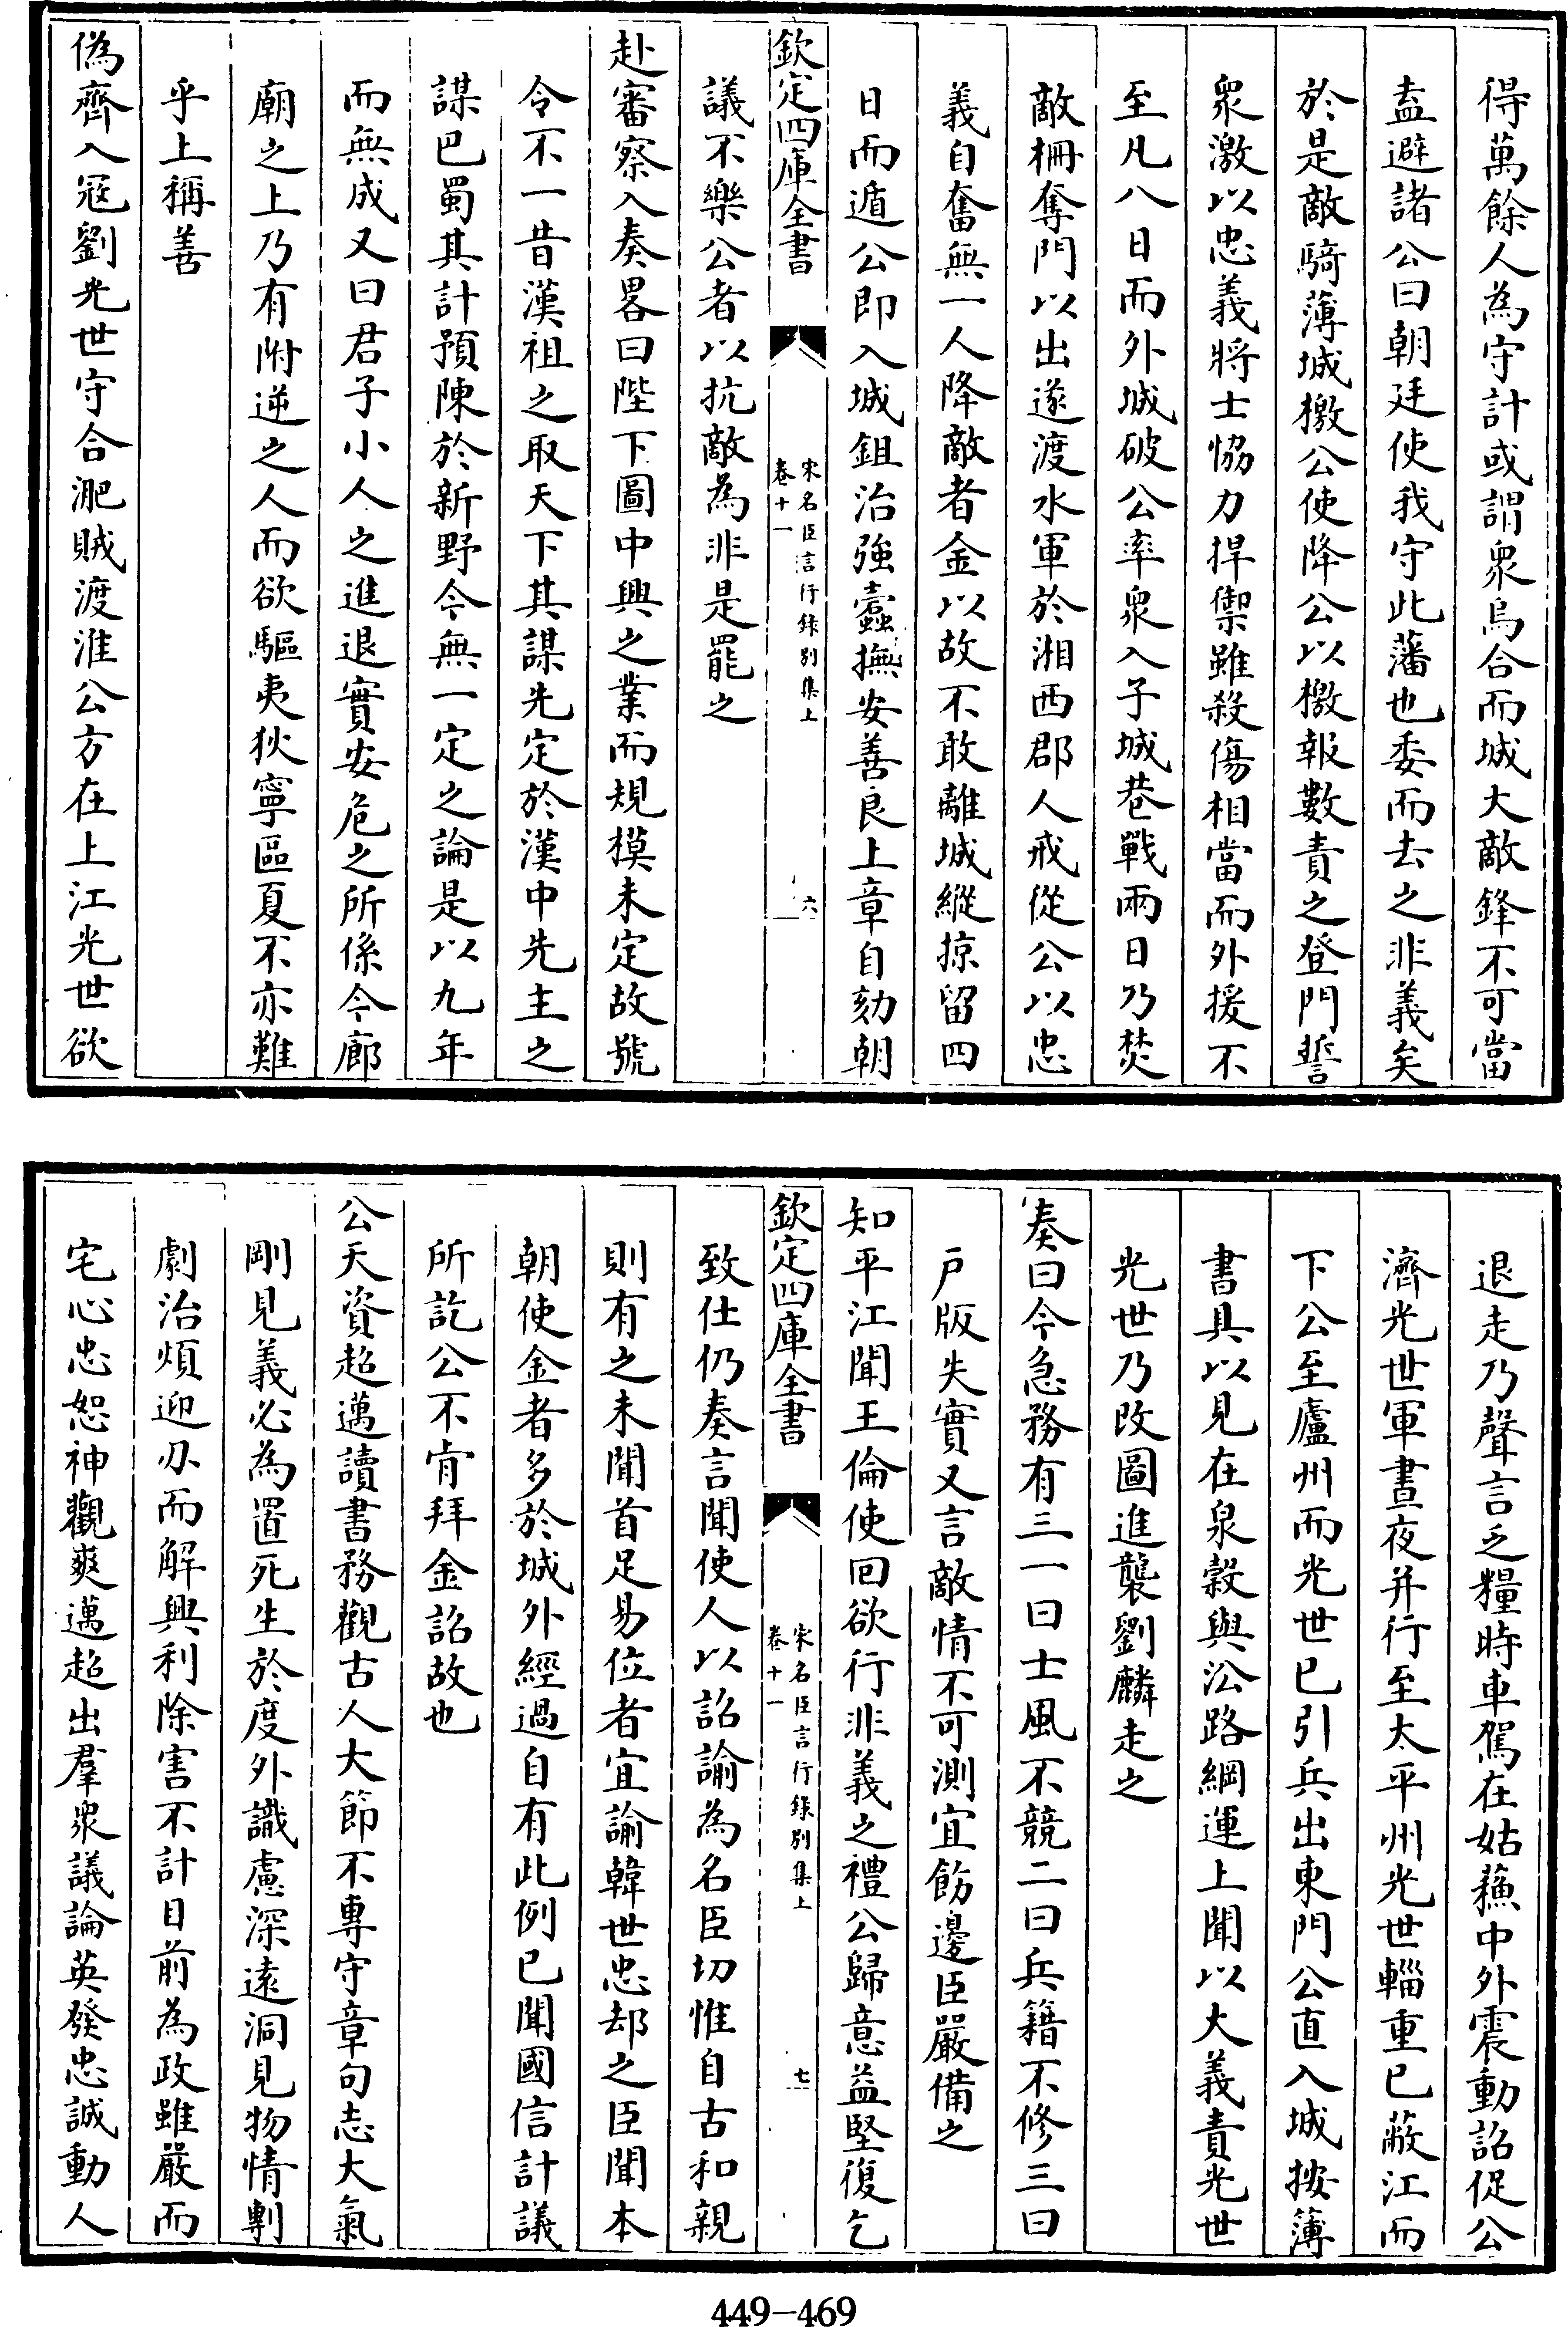 得萬餘人為守計或謂眾烏合而城大敵鋒不可當
盍避諸公曰朝廷使我守此藩也委而去之非義矣
於是敵騎薄城檄公使降公以檄報數責之登門誓
眾激以忠義將士恊力捍禦雖殺傷相當而外援不
至凡八日而外城破公率眾入子城巷戰兩日乃焚
敵柵奪門以出遂渡水軍於湘西郡人戒從公以忠
義自奮無一人降敵者金以故不敢離城縱掠留四
日而遁公即入城鉏治強蠹撫安善良上章自劾朝
欽定四庫全書
宋名臣言行錄別集上
卷十一
六
議不樂公者以抗敵為非是罷之
赴審察入奏畧曰陛下圖中興之業而規模未定故號
令不一昔漢祖之取天下其謀先定於漢中先主之
謀巴蜀其計預陳於新野今無一定之論是以九年
而無成又曰君子小人之進退實安危之所係今廊
廟之上乃有附逆之人而欲驅夷狄寧區夏不亦難
乎上稱善
偽齊入寇劉光世守合淝賊渡淮公方在上江光世欲
退走乃聲言乏糧時車駕在姑蘓中外震動詔促公
濟光世軍晝夜并行至太平州光世輜重已蔽江而
下公至廬州而光世已引兵出東門公直入城按簿
書具以見在泉穀與㳂路綱運上聞以大義責光世
光世乃改圖進襲劉麟走之
奏曰今急務有三一曰士風不競二曰兵籍不修三曰
戶版失實又言敵情不可測宜飭邊臣嚴備之
知平江聞王倫使回欲行非義之禮公歸意益堅復乞
欽定四庫全書
宋名臣言行錄別集上
卷十一
七
致仕仍奏言聞使人以詔諭為名臣切惟自古和親
則有之未聞首足易位者宜諭韓世忠却之臣聞本
朝使金者多於城外經過自有此例已聞國信計議
所訖公不肯拜金詔故也
公天資超邁讀書務觀古人大節不專守章句志大氣
剛見義必為置死生於度外識慮深遠洞見物情剸
劇治煩迎刃而解興利除害不計目前為政雖嚴而
宅心忠恕神觀爽邁超出羣眾議論英發忠誠動人
449-469